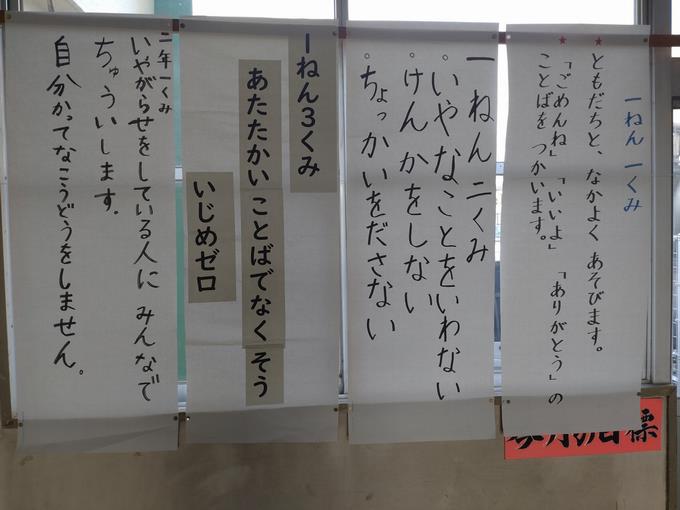 一ねん一くみ
★ともだちと、なかよくあそびます。
★「ごめんね」「いいよ」「ありがとう」の
ことばをつかいます。
一ねん二くみ
。いやなことをいわない
。けんかをしない
。ちょっかいをださない
一ねん3くみ
あたたかいことばでなくそう
いじめゼロ
二年一くみ
いやがらせをしている人にみんなで
ちゅういします.
自分かってなこうどうをしません。